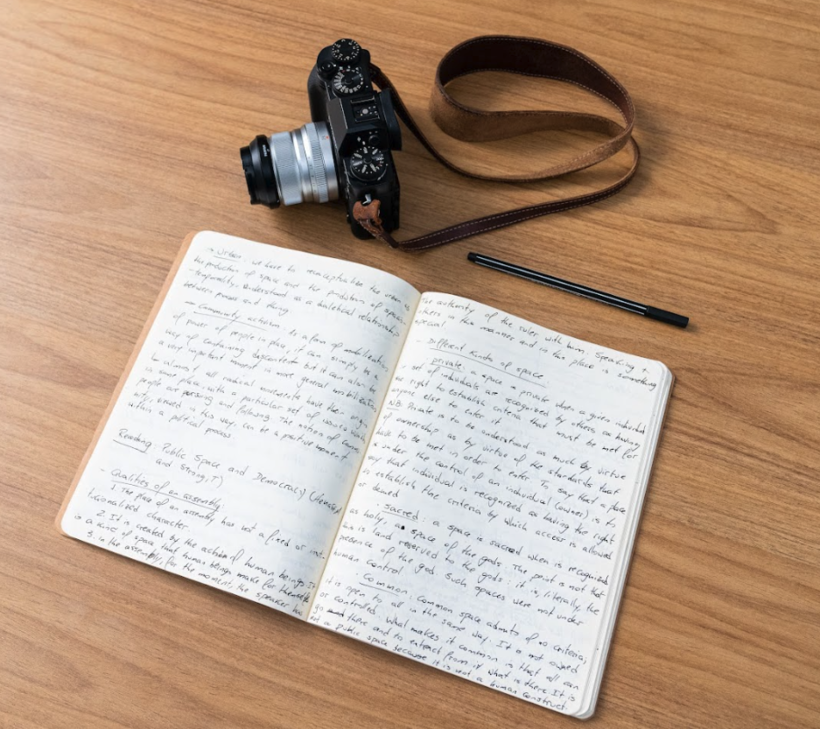 → Urban: we have to conceptualise the urban as
the production of space and the production of spatio
-temporality, understood as a dialectical relationship
between process and thing
→ Community activism: as a form of mobilization
of power of people in place, it can simply be a
way of containing discontents but it can also be
a very important moment in more general mobilization
all radical movements have their origin
in some place, with a particular set of issues which
people are pursuing and following. The notion of community
, viewed in this way, can be a positive moment
within a political process.
Reading: Public Space and Democracy (
and Strong, T)
- Qualities of an assembly
1. The place of an assembly has not a fixed or inst-
itutionalised character
2. It is created by the action of human beings. It
is a kind of space that human beings make for themselves
3. in the assembly, for the moment, the speaker has
the authority of the ruler with him. Speaking
there in this manner and in this place is something
special
- Different kinds of space
private: a space is private when a given individual
or set of individuals are recognized by others as having
the right to establish criteria that must be met for
anyone else to enter it
Private is to be understood as much by virtue
of ownership as by virtue of the standards that
have to be met in order to enter. To say that a place
is under the control of an individual (owner) is to
say that individual is recognized as having the right
to establish the criteria by which access is allowed
or denied
sacred: a space is sacred when is recognized
as holy, a space of the gods. The point is not that
this is land reserved to the gods: it is, literally, the
presence of the god. Such spaces were not under
human control
common: common space admits of no criteria;
it is open to all in the same way. It is not owned
or controlled. What makes it common is that all can
go there and to extract from it what is there. It is
not a public space because it is not a human construct.